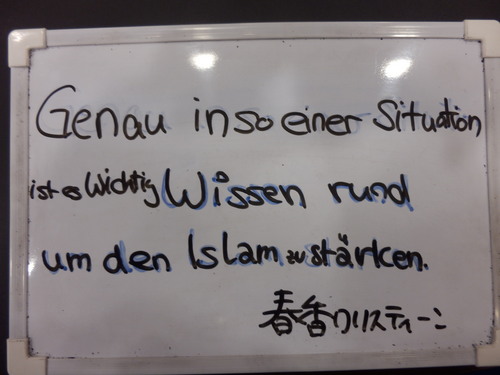 Genau in so einer Situation
ist es Wichtig Wissen rund
um den Islam zu stärken.
春香クリスティーン